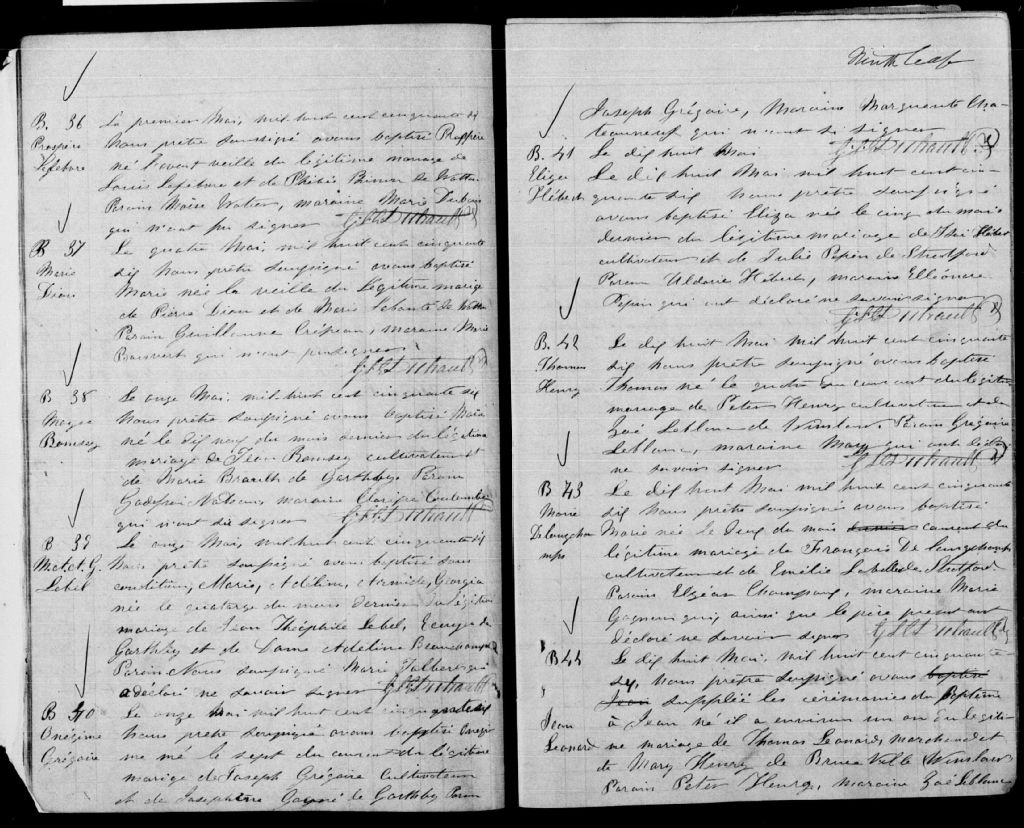 B. 36
Prospère
Lefebvre
Le premier Mai, mil huit cent cinquante six
Nous prêtre soussigné avons baptisé Prospère
né l'avant veille du légitime mariage de
Louis Lefebvre et de Phébée de Wotton
Parain Moïse Watier, maraine Marie Dubois
qui n'ont pu signer
B 37
Marie
Dion
Le quatre Mai, mil huit cent cinquante
six Nous prêtre soussigné avons baptisé
Marie née la veille du légitime mariage
de Pierre Dion et de Marie de Wotton
Parain Guillaume Crépeau, maraine Marie
Boisvert qui n'ont pu signer
B 38
Moyse
Ramsey
Le onze Mai, mil huit cent cinquante six
Nous prêtre soussigné avons baptisé
né le dix neuf du mois dernier du légitime
mariage de Jean Ramsey cultivateur et
de Marie Brault de Garthby Parain
Godefroi Nadeau, maraine
qui n'ont su signer
B 39
Lebel
Le onze Mai, mil huit cent cinquante six
Nous prêtre soussigné avons baptisé sous
condition, Marie, Adéline, Armide, Georgia
née le quatorze du mois dernier du légitime
mariage de Jean Théophile Lebel, Ecuyer de
Garthby et de Dame Adeline Beauchamp
Parain Nous soussigné Marie Talbert qui
a déclaré ne savoir signer
B 40
Onésime
Grégoire
Le onze Mai mil huit cent cinquante six
Nous prêtre soussigné avons baptisé Onési-
me né le sept du courant du légitime
mariage de Joseph Grégoire Cultivateur
et de Josephine Gagné de Garthby Parain
Ninth leaf
Joseph Grégoire, Maraine Marguerite Cha-
teauneuf qui n'ont su signer
B. 41
Eliza
Hébert
Le dix huit Mai
Le dix huit Mai mil huit cent cin-
quante six Nous prêtre soussigné
avons baptisé Eliza née le cinq du mois
dernier du légitime mariage de Hébert
cultivateur et de Julie Pepin de Stratford
Parain Uldoric Hébert, maraine Elléonore
Pepin qui ont déclaré ne savoir signer
B. 42
Thomas
Henry
Le dix huit Mai mil huit cent cinquante
six Nous prêtre soussigné avons baptisé
Thomas né le quatre du courant du légitime
mariage de Peter Henry cultivateur et de
Zoé Leblanc de Winslow, Parain Grégoire
Leblanc, maraine Mary qui ont déclaré
ne savoir signer
B 43
Marie
De Longcha
mps
Le dix huit Mai mil huit cent cinquante
six Nous prêtre soussigné avons baptisé
Marie née le deux du mois courant du
légitime mariage de François De Longchamps
cultivateur et de Emélie Labelle de Stratford
Parain Elzéar Champoux, maraine Marie
Gagnon qui, ainsi que le père présent ont
déclaré ne savoir signer
B 44
Jean
Leonard
Le dix huit Mai, mil huit cent cinquante
six, Nous prêtre soussigné avons baptisé
Jean suppléé les cérémonies du Baptême
à Jean né il a environ un an du légiti-
me mariage de Thomas Leonard, marchand et
de Mary Henry de Bruce Ville Winslow
Parain Peter Henry, maraine Zoé Leblanc